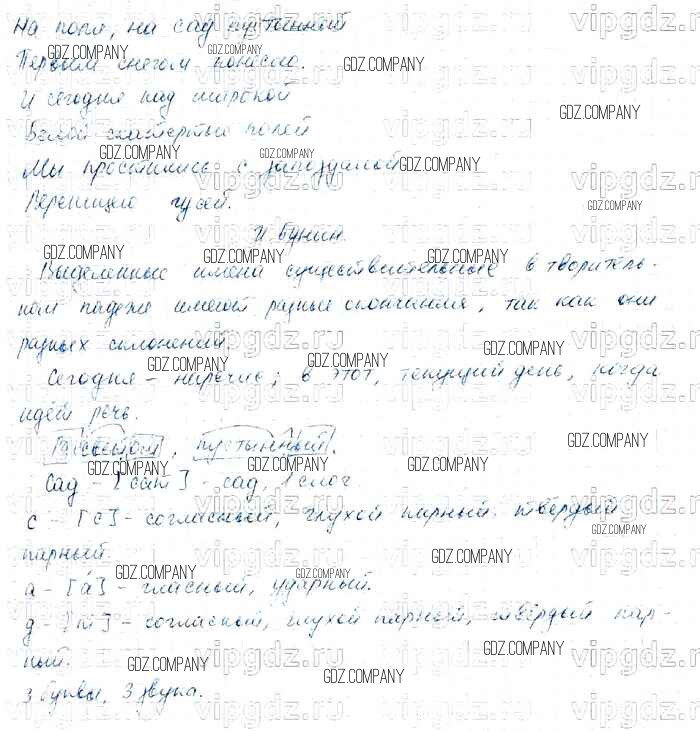 На поля, на сад пустынный
Первым снегом понесло.
И сегодня над широкой
Белой скатертью полей
Мы простились с запоздалой
Вереницею гусей.
И. Бунин.
Выделенные имена существительные в творитель-
ном падеже имеют разные окончания, так как они
разных склонений.
Сегодня – наречие; в этот, текущий день, когда
идёт речь.
пустынный.
Сад – [сат] – сад, 1 слог.
с – [с] – согласный, глухой парный, твёрдый
парный.
а – [а́] – гласный, ударный.
д – [т] – согласный, глухой парный, твёрдый пар-
ный.
3 буквы, 3 звука.
GDZ.COMPANY
vipgdz.ru